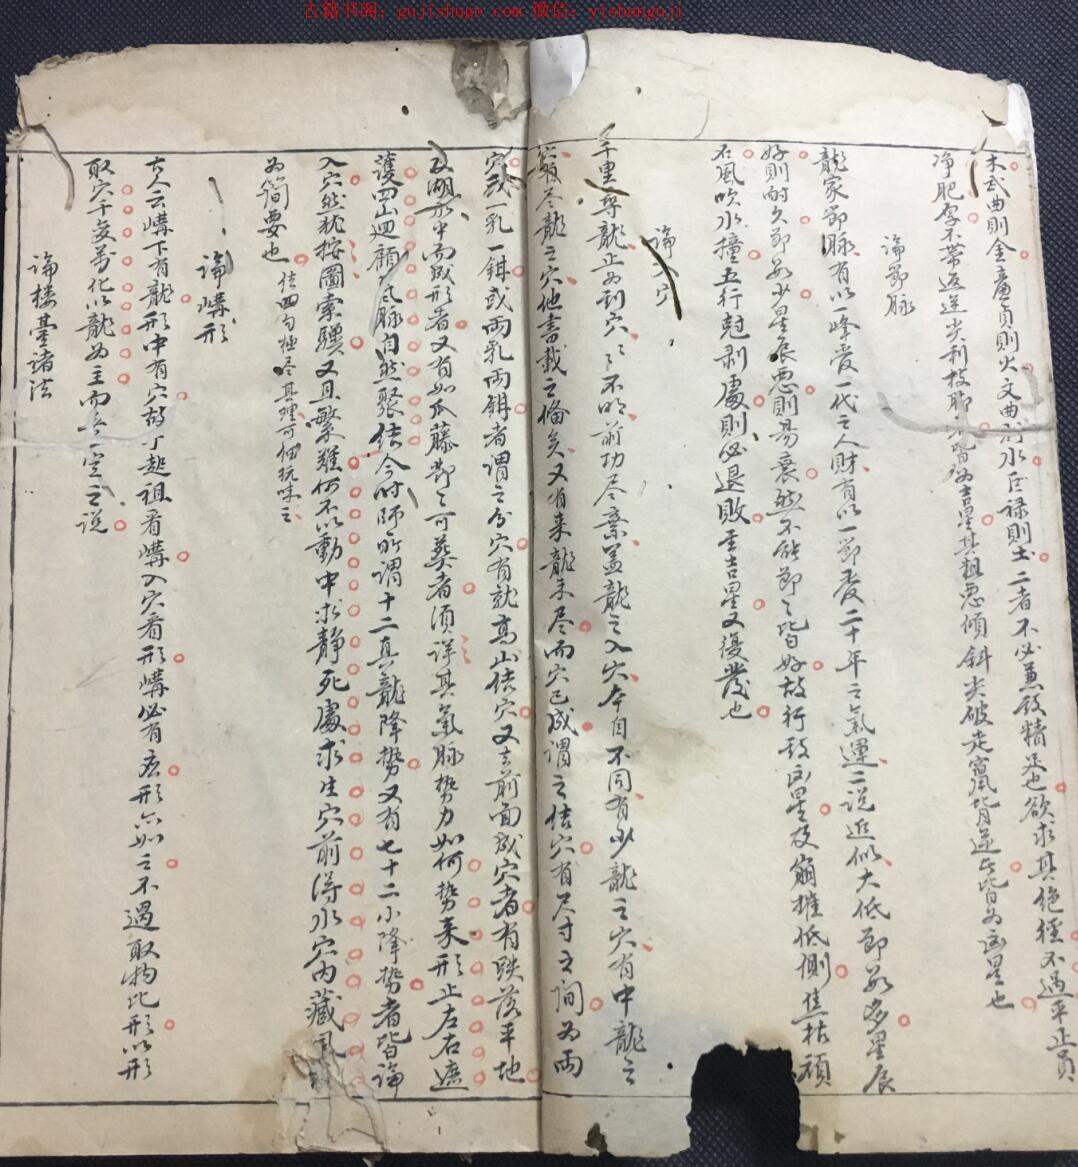 古籍书阁：gujishuge com 微信：yishanguji
木武曲則金廉貞則火文曲則水巨禄則土二者不必兼致精巫也欲求其絶極不過平正員
净肥厚不帶返逆尖利枝脚皆為吉星其粗惡傾斜尖破走竄背逆此皆為凶星也
論節脉
龍家節脉有以一峰爱一代之人財有以一節爱二十年之氣運二說近似大低節数多星辰
好則耐久節数少星辰惡則易衰然不能節々皆好故行致凶星及崩摧低側焦枯頑
石風吹水撞五行尅剥處則必退敗至吉星又復發也
論入穴
千里尋龍止為到穴々不明前功尽棄盖龍之入穴本自不同有少龍之穴有中龍之
穴有尽龍之穴他書載之備矣又有来龍未尽而穴已成謂之結穴有尺寸之間為兩
穴或一乳一鉗或兩乳兩鉗者謂之分穴有就高山結穴又去前面成穴者有跌落平地
及湖水中而成形者又有如瓜藤節々可葬者須詳其氣脉势力如何势来形止左右遮
護四山廻顧風脉自然聚結今时師所謂十二真龍降势又有七十二小降势者皆論
入穴然执按圖索驥又且繁難何不以動中求静死處求生穴前得水穴内藏風
為簡要也 結四句極尽其理可細玩味之
論嶹形
古人云嶹下有龍形中有穴故了起祖看嶹入穴看形嶹必有形亦如之不過取物比形以形
取穴千变萬化以龍為主而無一定之說
論楼臺諸法